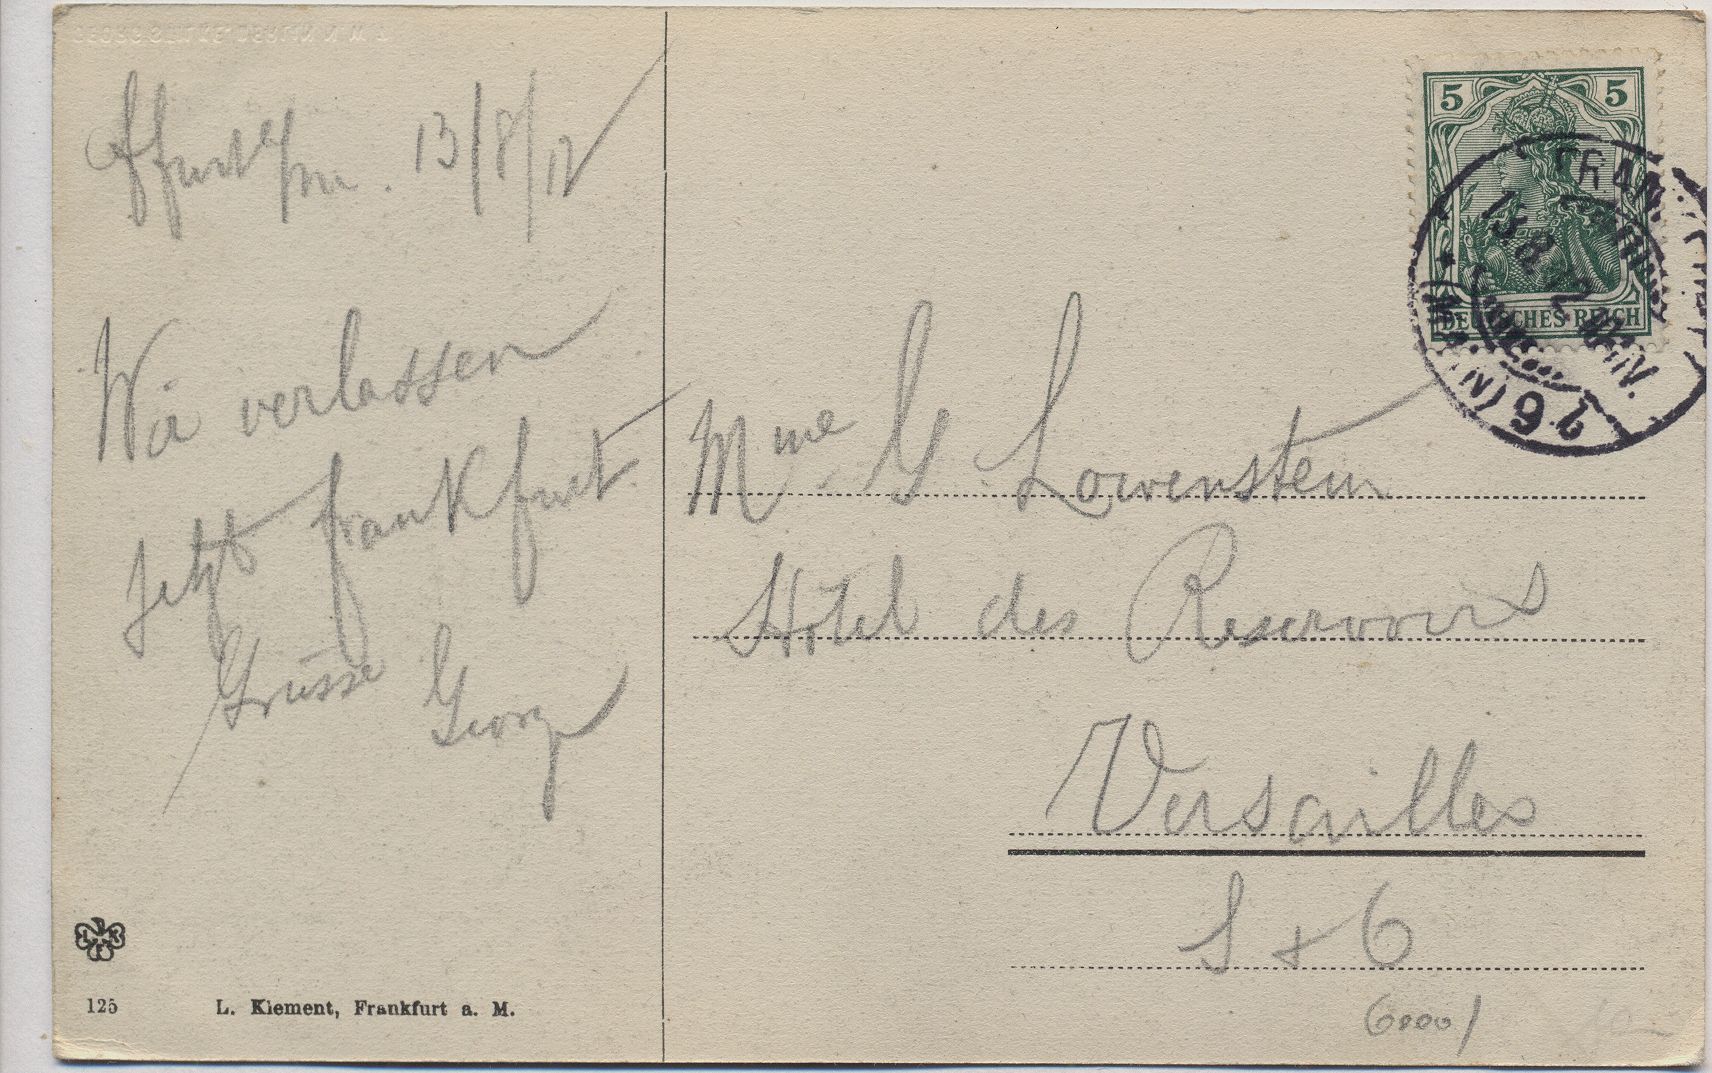 Ffurt a/m. 13/8/12
Wir verlassen
jetzt Frankfurt.
Grüsse Georg
125
L. Klement, Frankfurt a. M.
5 5
DEUTSCHES REICH
13.8.12
Mme G. Lowenstein
Hôtel des Reservoirs
Versailles
S + O
6000/